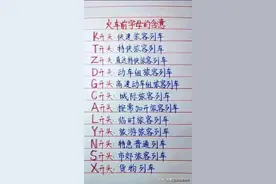 火车前字母的含意
K开头 快速旅客列车
T开头 特快旅客列车
Z开头 直达特快旅客列车
D开头 动车组旅客列车
G开头 高速动车组旅客列车
C开头 城际旅客列车
A开头 按需加开旅客列车
L开头 临时旅客列车
Y开头 旅游旅客列车
N开头 特急普通列车
S开头 市郊旅客列车
X开头 货物列车